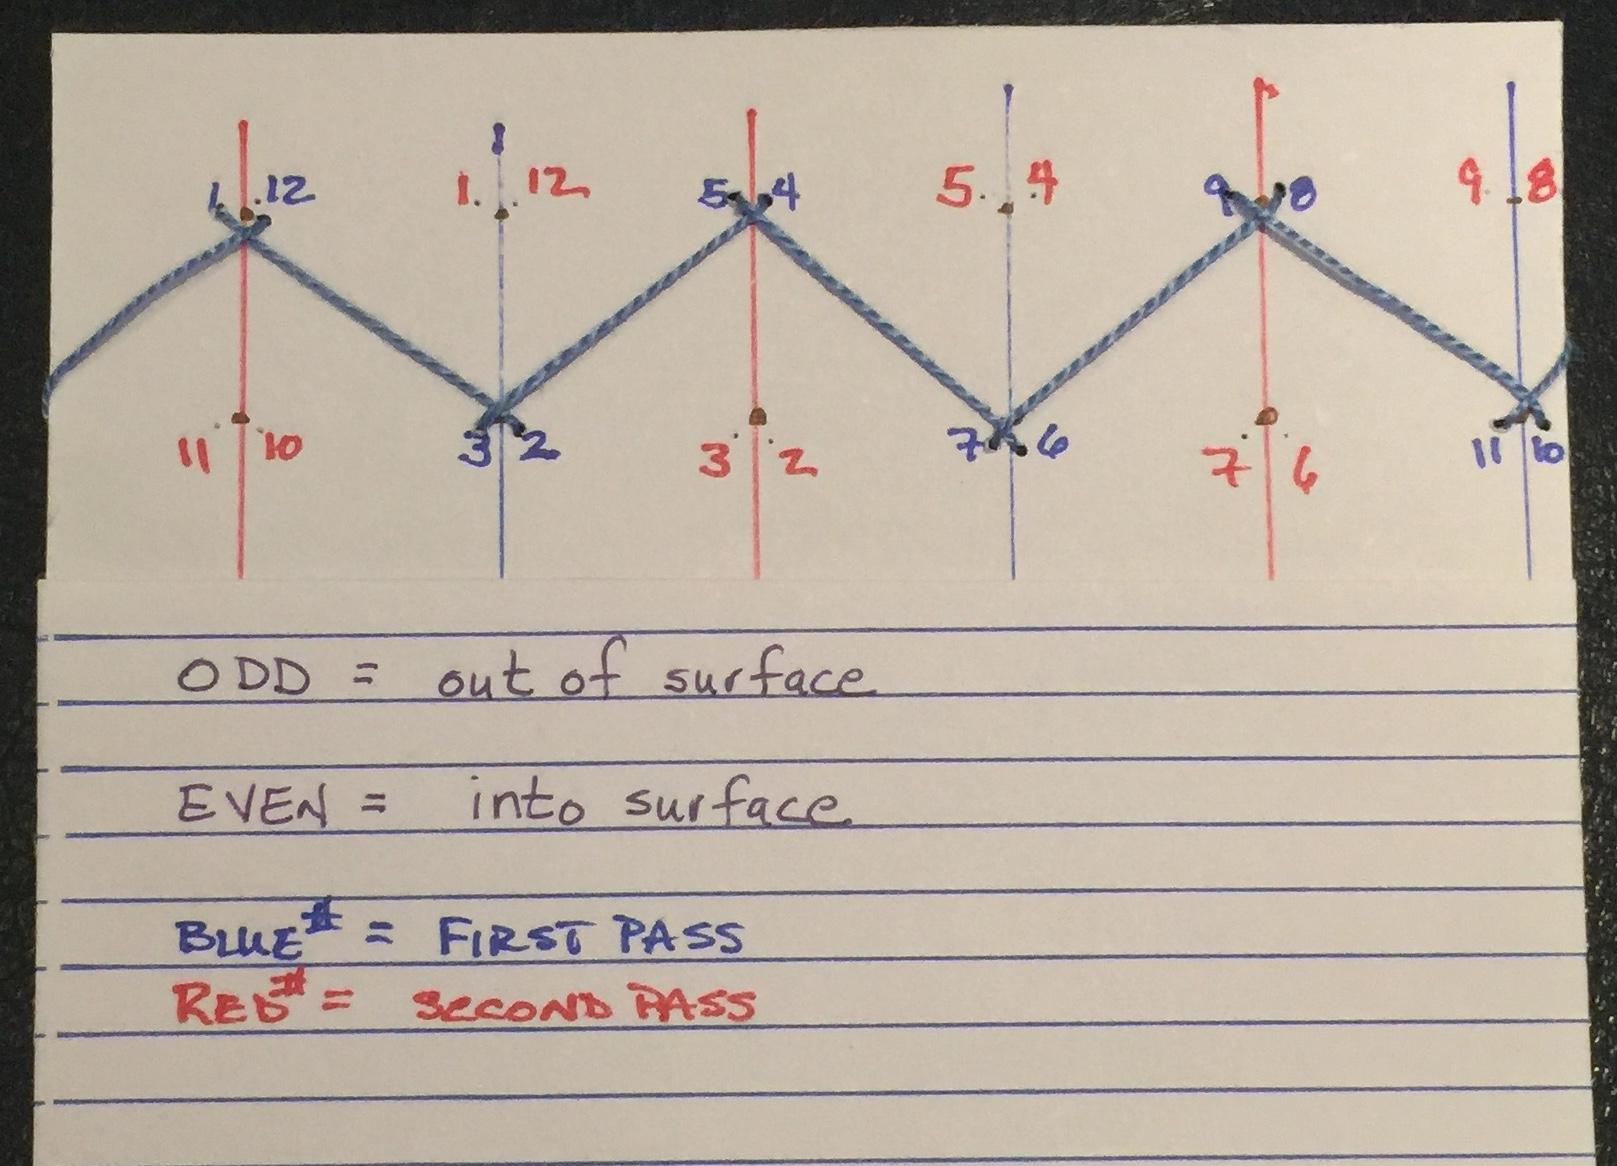 1 12 1 12 5 4 5 4 9 8 9 8
11 10 3 2 3 2 7 6 7 6 11 10
ODD = out of surface
EVEN = into surface
BLUE# = FIRST PASS
RED# = SECOND PASS